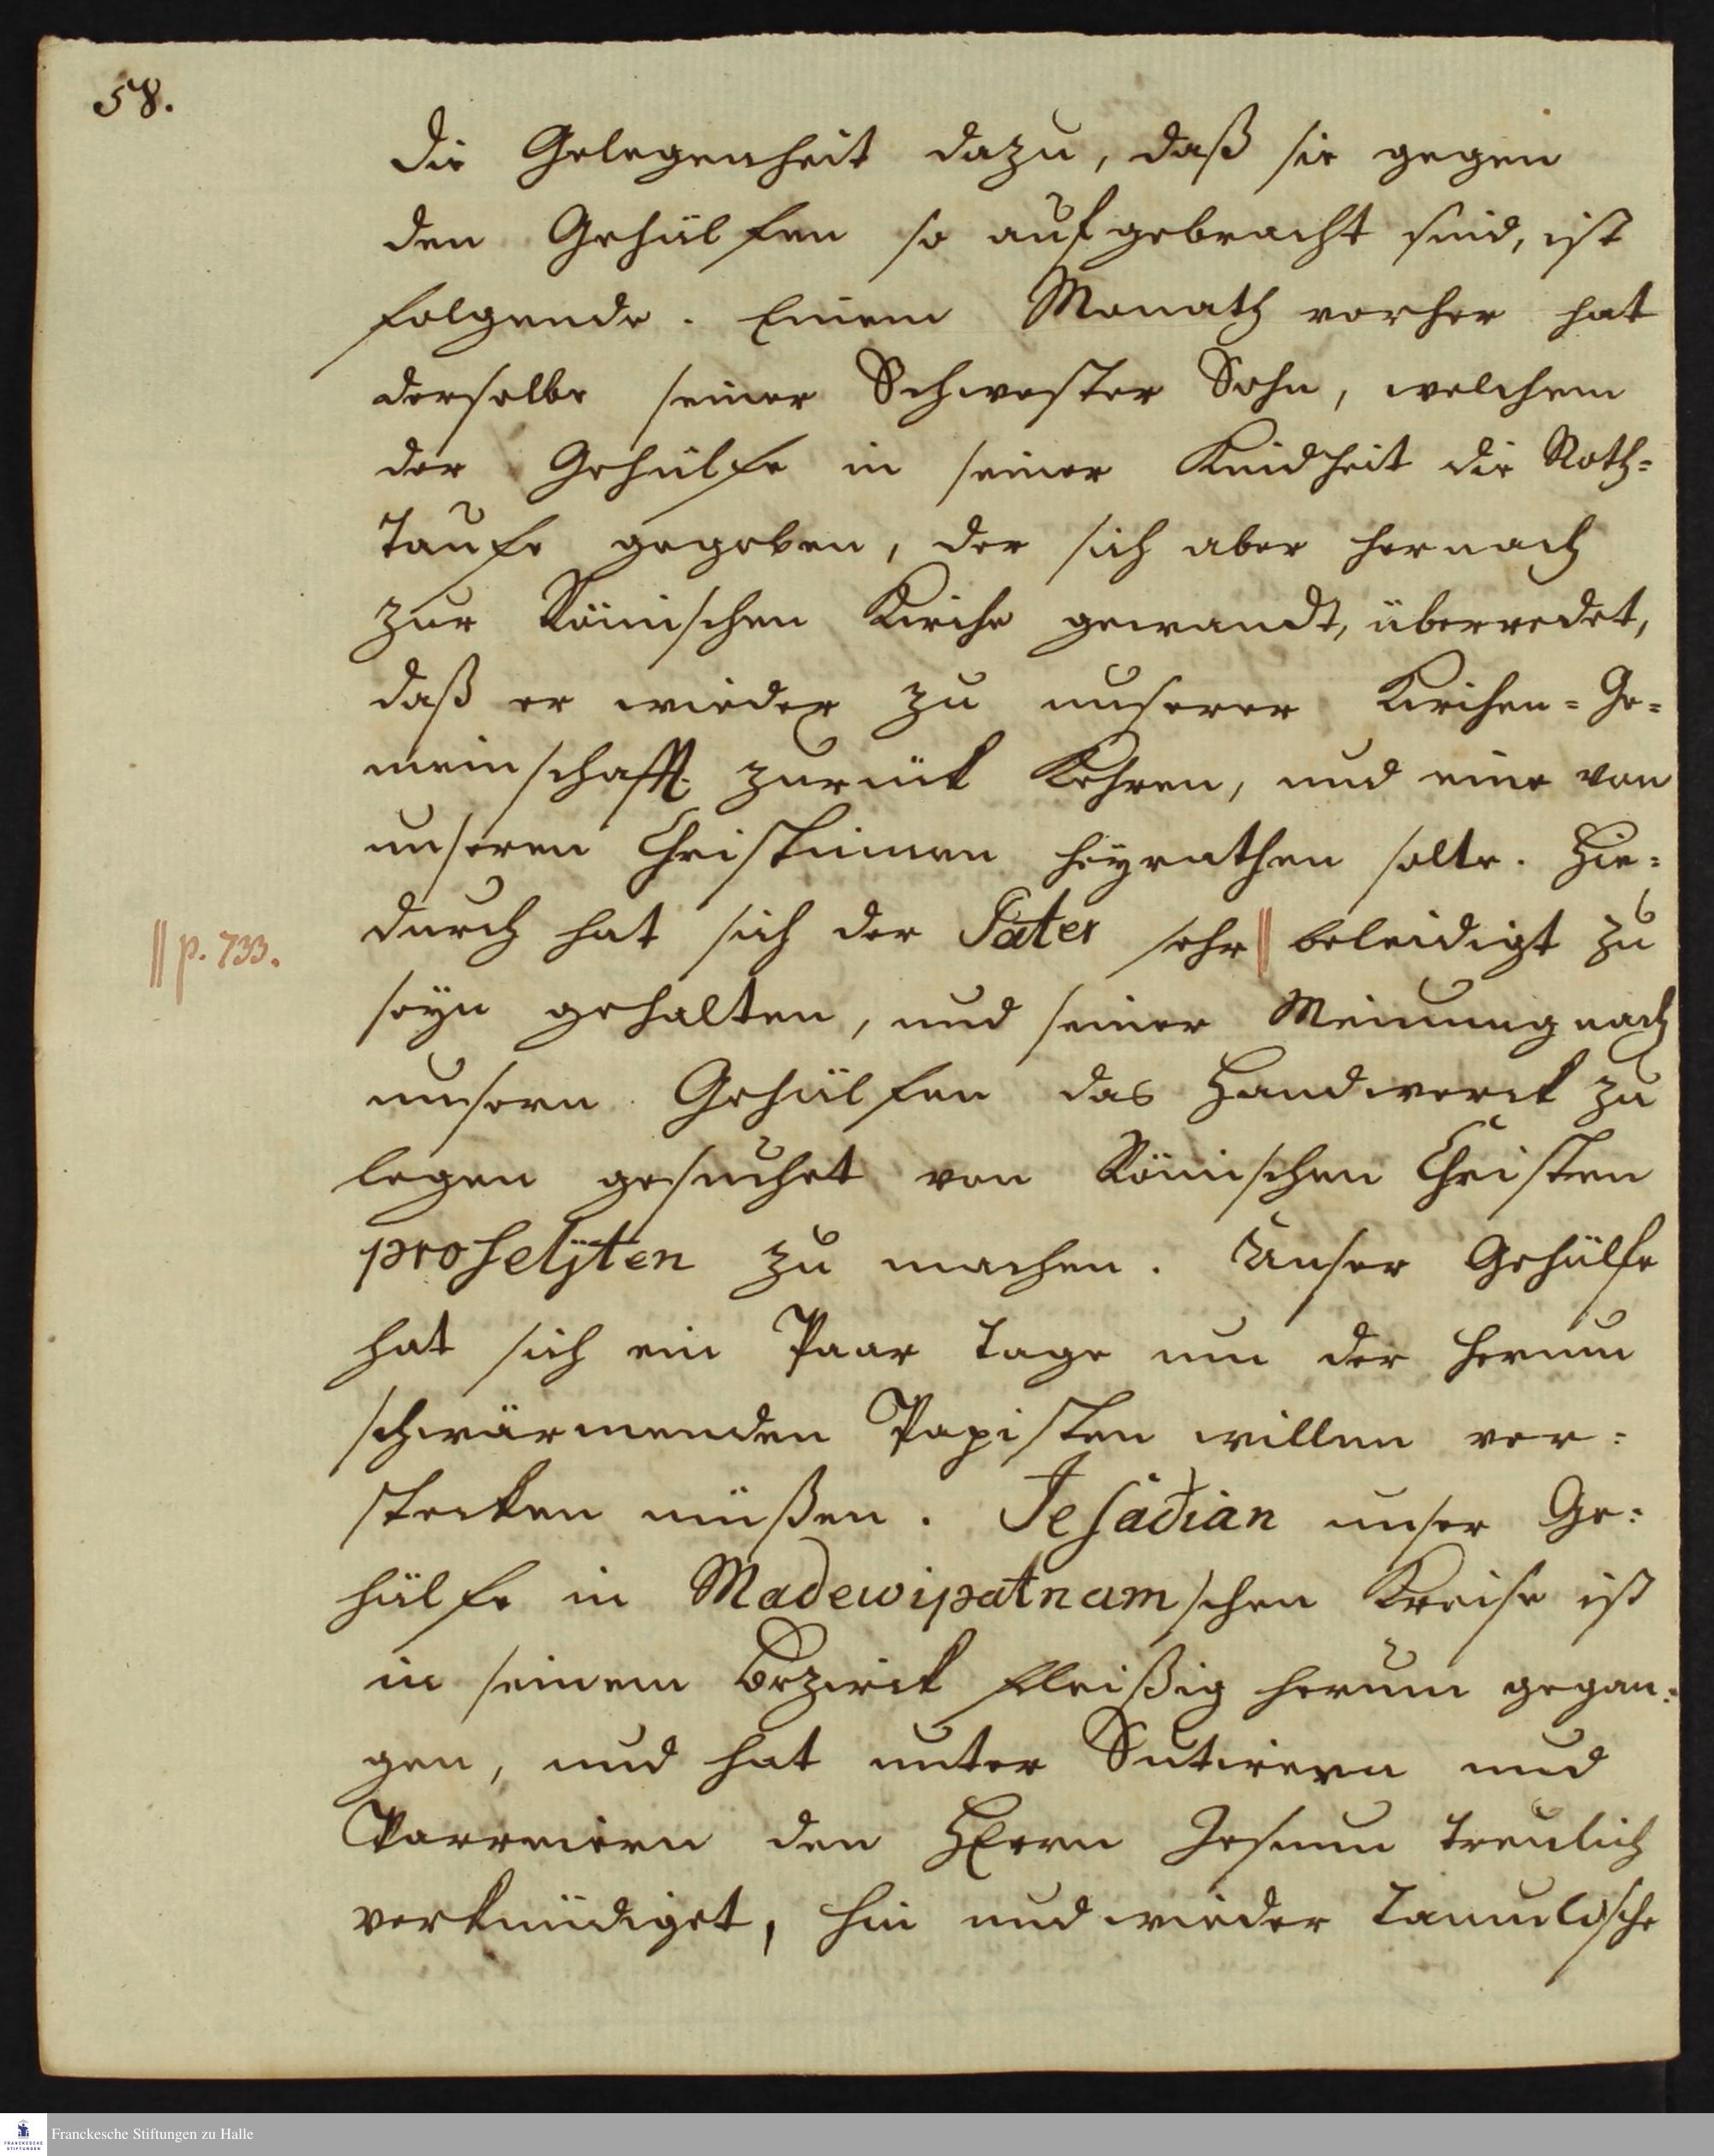 58.
die Gelegenheit dazu, daß sie gegen
den Gehülfen so aufgebracht sind, ist
folgende. Einem Monath vorher hat
derselbe seiner Schwester Sohn, welchem
der Gehülfe in seiner Kindheit die Noth=
Taufe gegeben, der sich aber hernach
zur Römischen Kirche gewandt, überredet,
daß er wieder zu unserer Kirchen=Ge=
meinschafft zurück kehren, und eine von
unseren Christinnen heyrathen solte. Hie=
durch hat sich der Pater sehr || beleidigt zu
|| p. 733.
seyn gehalten, und seiner Meinung nach
unsern Gehülfen das Handwerck zu
legen gesuchet von Römischen Christen
proselÿten zu machen. Unser Gehülfe
hat sich ein Paar Tage um der herum
schwärmenden Papisten willen ver=
stecken müßen. Jesadian unser Ge=
hülfe in Madewipatnamschen Kreise ist
in seinem Bezirck fleißig herum gegan=
gen, und hat unter Sutirern und
Parreiern den HErrn Jesum treulich
verkündiget, hin und wieder Tamulische
Franckesche Stiftungen zu Halle